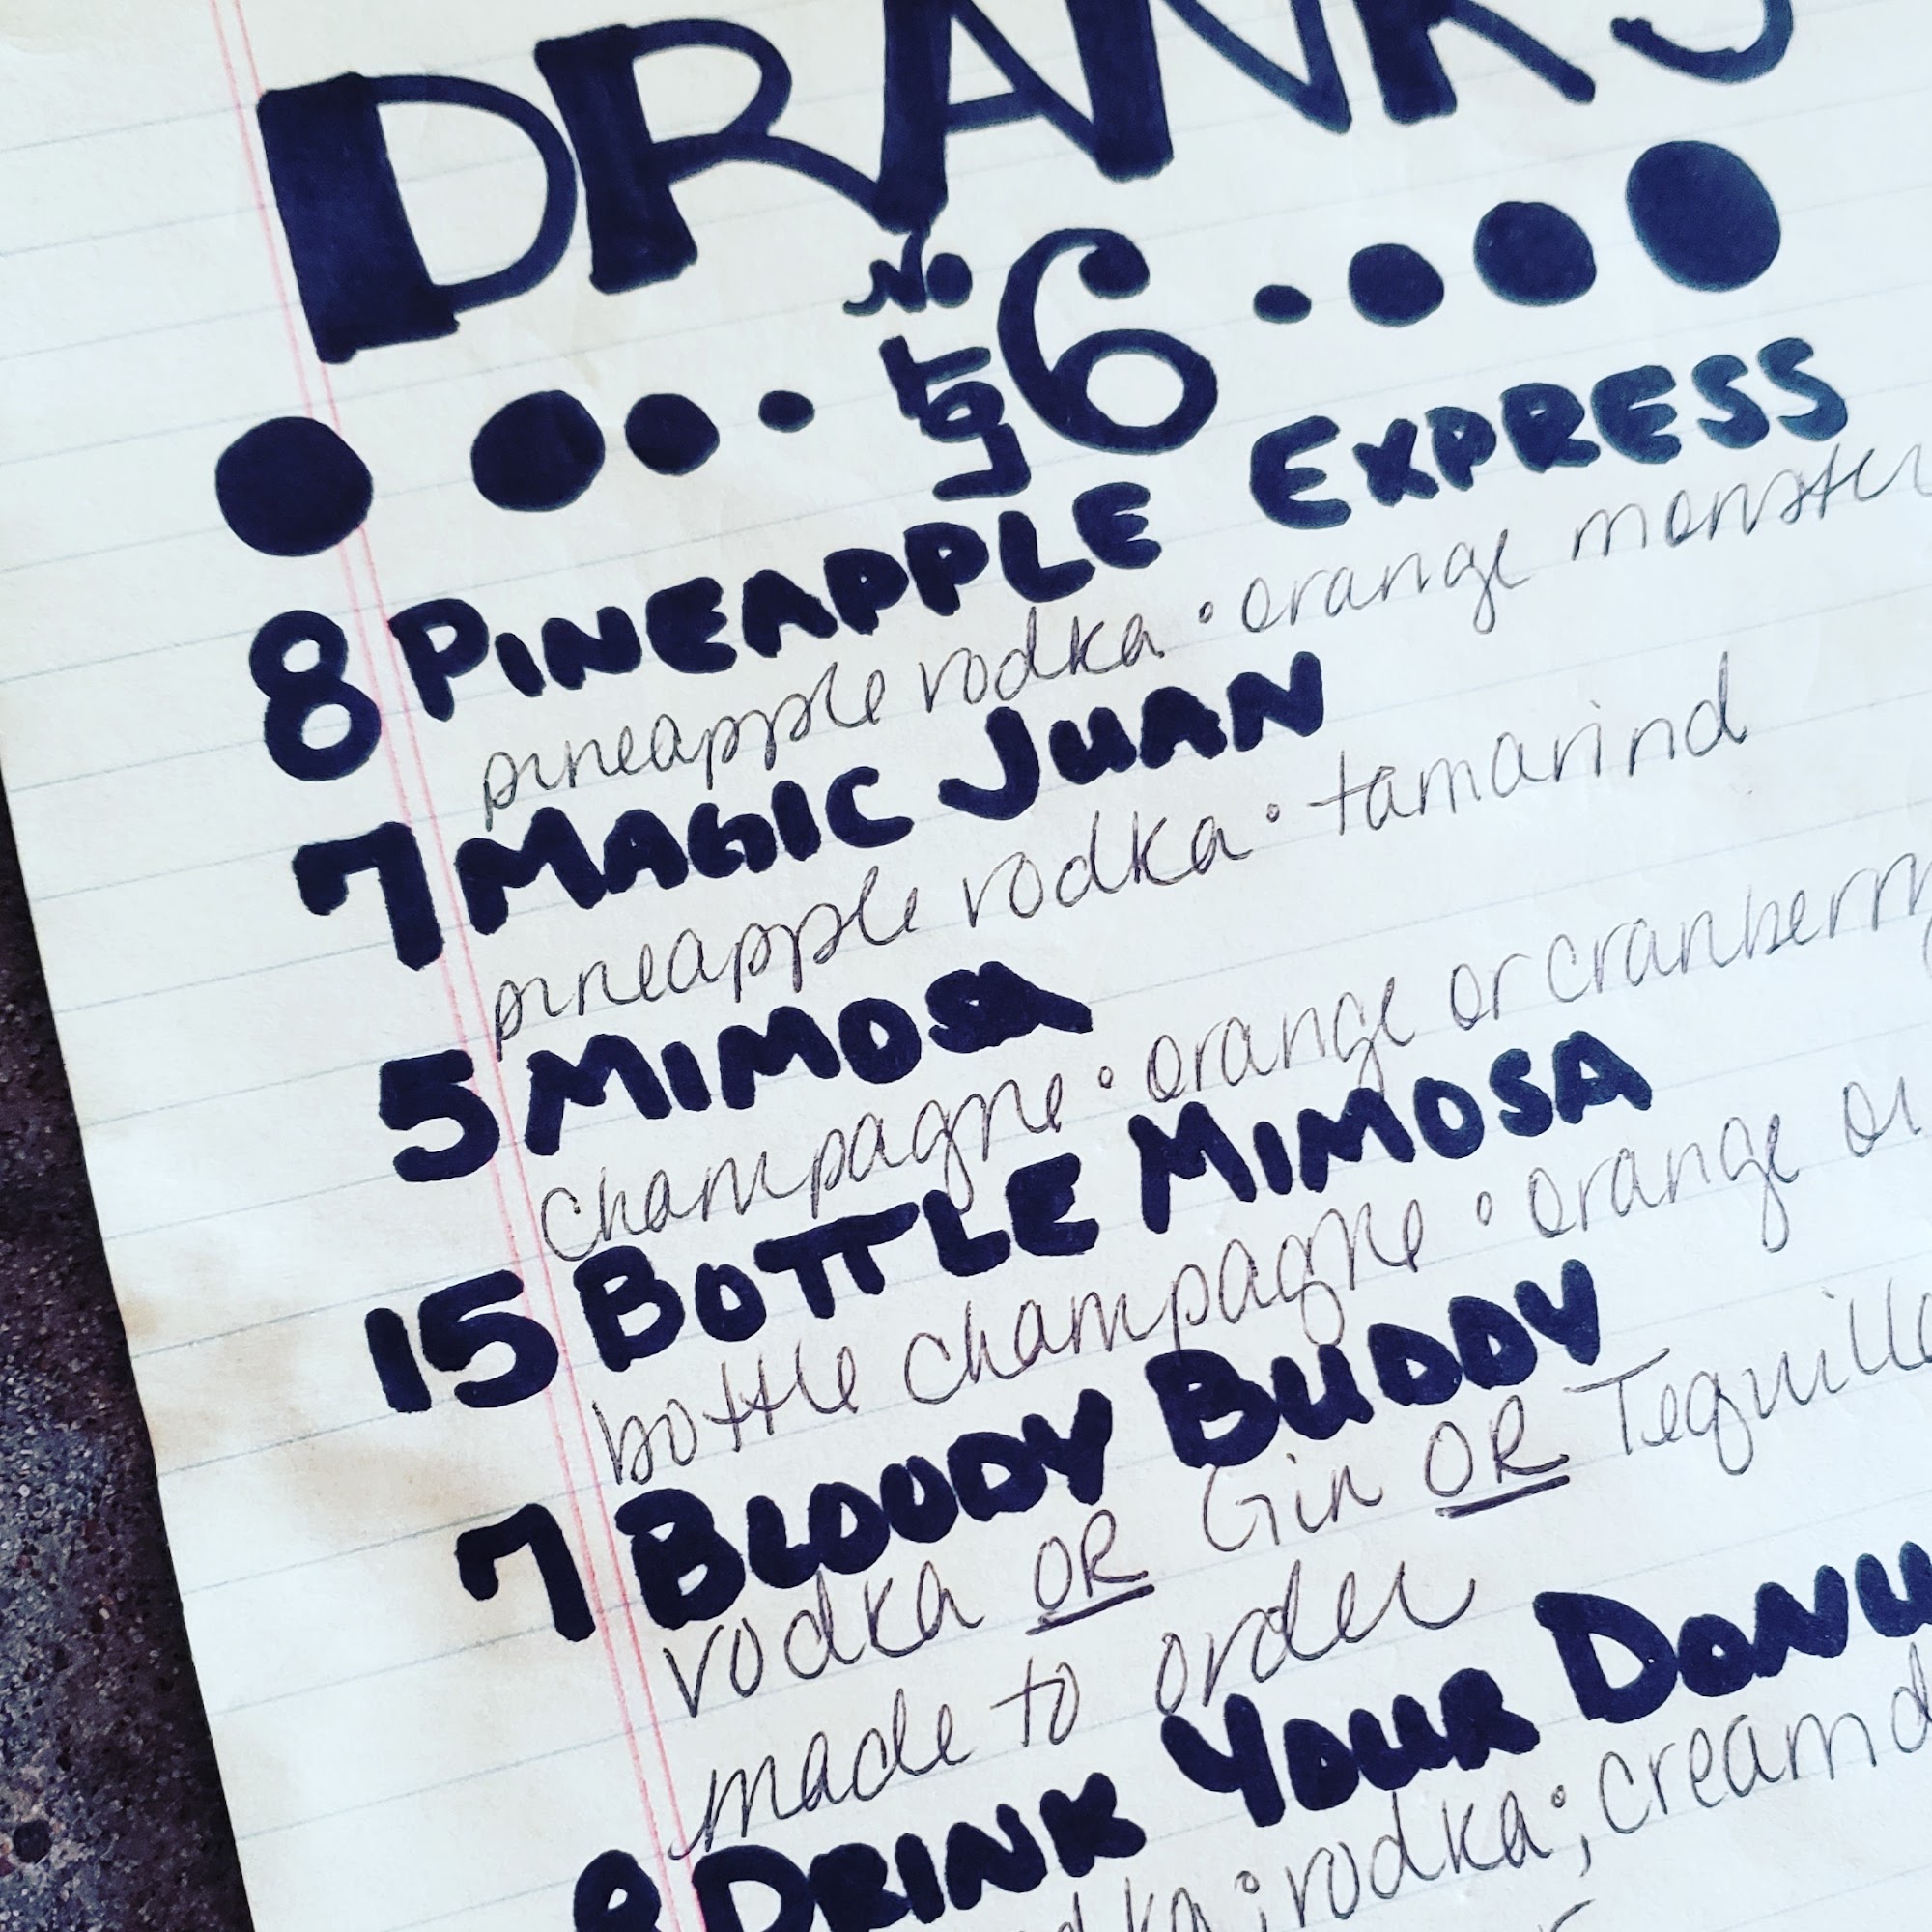 DRANKS
No 6
8 PINEAPPLE EXPRESS
pineapple vodka • orange monster
7 MAGIC JUAN
pineapple vodka • tamarind
5 MIMOSA
champagne • orange or cranberry
15 BOTTLE MIMOSA
bottle champagne • orange or
7 BLOODY BUDDY
vodka OR Gin OR Tequilla
made to order
8 DRINK YOUR DONU
vodka ; cream